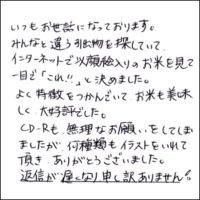 いつもお世話になっております。
みんなと違う引出物を探していて、
インターネットで似顔絵入りのお米を見て
一目で「これ!!」と決めました。
よく特徴をつかんでいてお米も美味
しく大好評でした。
CD-Rも無理なお願いをしてしま
いましたが、何種類もイラストをいれて
頂き、ありがとうございました。
返信が遅くなり申し訳ありません。